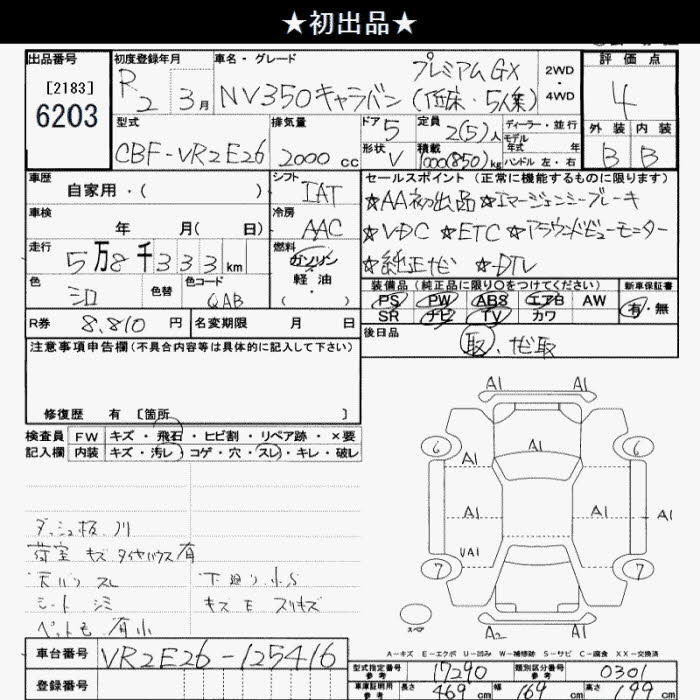 ★初出品★
出品番号 初度登録年月 車名・グレード 評価点
[2183]
6203
R2 3月 NV350キャラバン プレミアムGX (低床・5人乗) 2WD 4WD 4
外装 内装
B B
型式 排気量 ドア 5 定員 2(5)人 ディーラー・並行
モデル年式 年
CBF-VR2E26 2000cc 形状 V 積載 1000(850)kg ハンドル 左・右
車歴 自家用・( ) シフト IAT セールスポイント (正常に機能するものに限ります)
★AA初出品 ★エマージェンシーブレーキ
車検 年 月( 日) 冷房 AAC ★VDC ★ETC ★アラウンドビューモニター
走行 5万8千333km 燃料 ガソリン 軽油 ・( )
★純正ナビ ★DTV
色 シロ 色替 色コード QAB
装備品 (純正品に限り○をつけてください) 新車保証書
PS PW ABS エアB AW 有・無
SR ナビ TV カワ
R券 8,810円 名変期限 月 日 後日品
取、ナビ取
注意事項申告欄(不具合内容等は具体的に記入して下さい)
修復歴 有 [箇所 ]
検査員 FW キズ・飛石・ヒビ割・リペア跡・×要
記入欄 内装 キズ・汚レ・コゲ・穴・スレ・キレ・破レ
A1 A1
6 A1 6
A1 A1
A1 A1 A1
UA1
7 7
スペア
A2 A1
ダッシュ板 ノリ
荷室 キズ タイヤハウス有
天バリ スレ 下廻り小S
シート シミ キズE スリキズ
ペット毛 有 小
A－キズ E－エクボ U－凹み W－補修跡 S－サビ C－腐食 XX－交換済
車台番号 VR2E26-125416
型式指定番号 参考 17290 類別区分番号 参考 0301
登録番号
車庫証明用 参考 長さ 469cm 幅 169cm 高さ 199cm